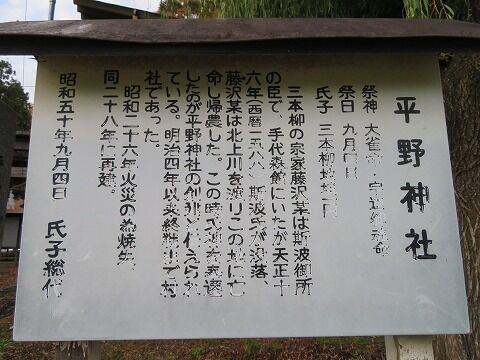 平野神社
祭神 大雀命
祭日 九月四日
氏子 三本柳地域一円
三本柳の宗家藤沢某は斯波御所
の臣で、手代森館にいたが天正十
六年(西暦一五八八)斯波氏が没落、
藤沢某は北上川を渡りこの地に亡
命し帰農した。この時氏神を
したのが平野神社の創始と伝えられ
ている。明治四年以来 村
社であった。
昭和二十六年火災の為焼失、
同二十八年に再建。
昭和五十年九月四日 氏子総代